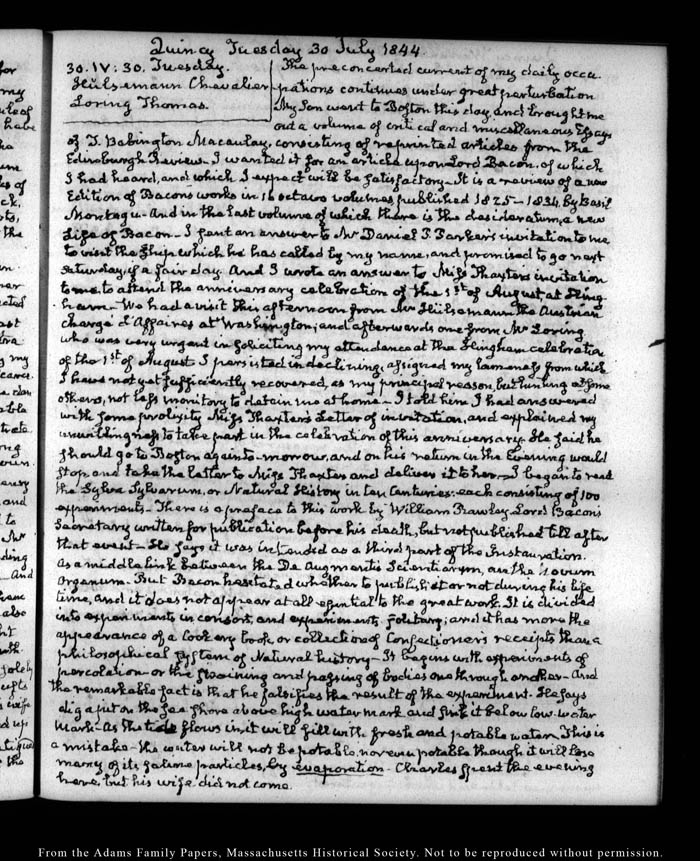 Quincy Tuesday 30 July 1844
30. IV: 30. Tuesday.
Hülsemann Chevalier
Loring Thomas.
The preconcerted current of my daily occu-
pations continues under great perturbation
My Son went to Boston this day, and brought me
out a volume of critical and miscellaneous Essays
of T. Babington Macaulay, consisting of reprinted articles from the
Edinburgh Review. I wanted it for an article upon Lord Bacon, of which
I had heard, and which I expect will be satisfactory. It is a review of a new
Edition of Bacon's works in 16 octavo volumes published 1825–1834. by Basil
Montagu. And in the last volume of which there is the desideratum, a new
Life of Bacon. I sent an answer to Mr Daniel P. Parker's invitation to me
to visit the Ship which he has called by my name, and promised to go next
Saturday, if a fair day. And I wrote an answer to Miss Thaxter's invitation
to me, to attend the anniversary celebration of the 1st of August, at Hing-
ham. We had a visit this afternoon from Mr Hülsemann the Austrian
Chargé d'Affaires at Washington; and afterwards one from Mr Loring
who was very urgent in soliciting my attendance at the Hingham celebration
of the 1st of August. I persisted in declining, assigned my lameness from which
I have not yet sufficiently recovered, as my principal reason, but hinting at some
others, not less monitory to detain me at home. I told him I had answered
with some prolixity Miss Thaxter's Letter of invitation, and explained my
unwillingness to take part in the celebration of this anniversary. He said he
should go to Boston again to-morrow, and on his return in the Evening would
stop and take the letter to Miss Thaxter and deliver it to her. I began to read
the Sylva Sylvarum, or Natural History in ten Centuries. each consisting of 100
experiments. There is a preface to this work by William Rawley, Lord Bacon's
Secretary written for publication before his death, but not published till after
that event. He says it was intended as a third part of the Instauration.
As a middle link between the De Augmentis Scientiarum, and the Novum
Organum. But Bacon hesitated whether to publish it or not during his life
time, and it does not appear at all essential to the great work. It is divided
into experiments in consort, and experiments solitary; and it has more the
appearance of a Cookery book, or collection of Confectioner's receipts than a
philosophical System of Natural history. It begins with experiments of
percolation or the straining and passing of bodies one through another. And
the remarkable fact is that he falsifies the result of the experiment. He says
dig a pit on the sea shore above high water mark and sink it below low-water
mark. As the tide flows in it will fill with fresh and potable water. This is
a mistake. the water will not be potable, nor even potable though it will lose
many of its saline particles, by evaporation. Charles spent the evening
here, but his wife did not come.
From the Adams Family Papers, Massachusetts Historical Society. Not to be reproduced without permission.